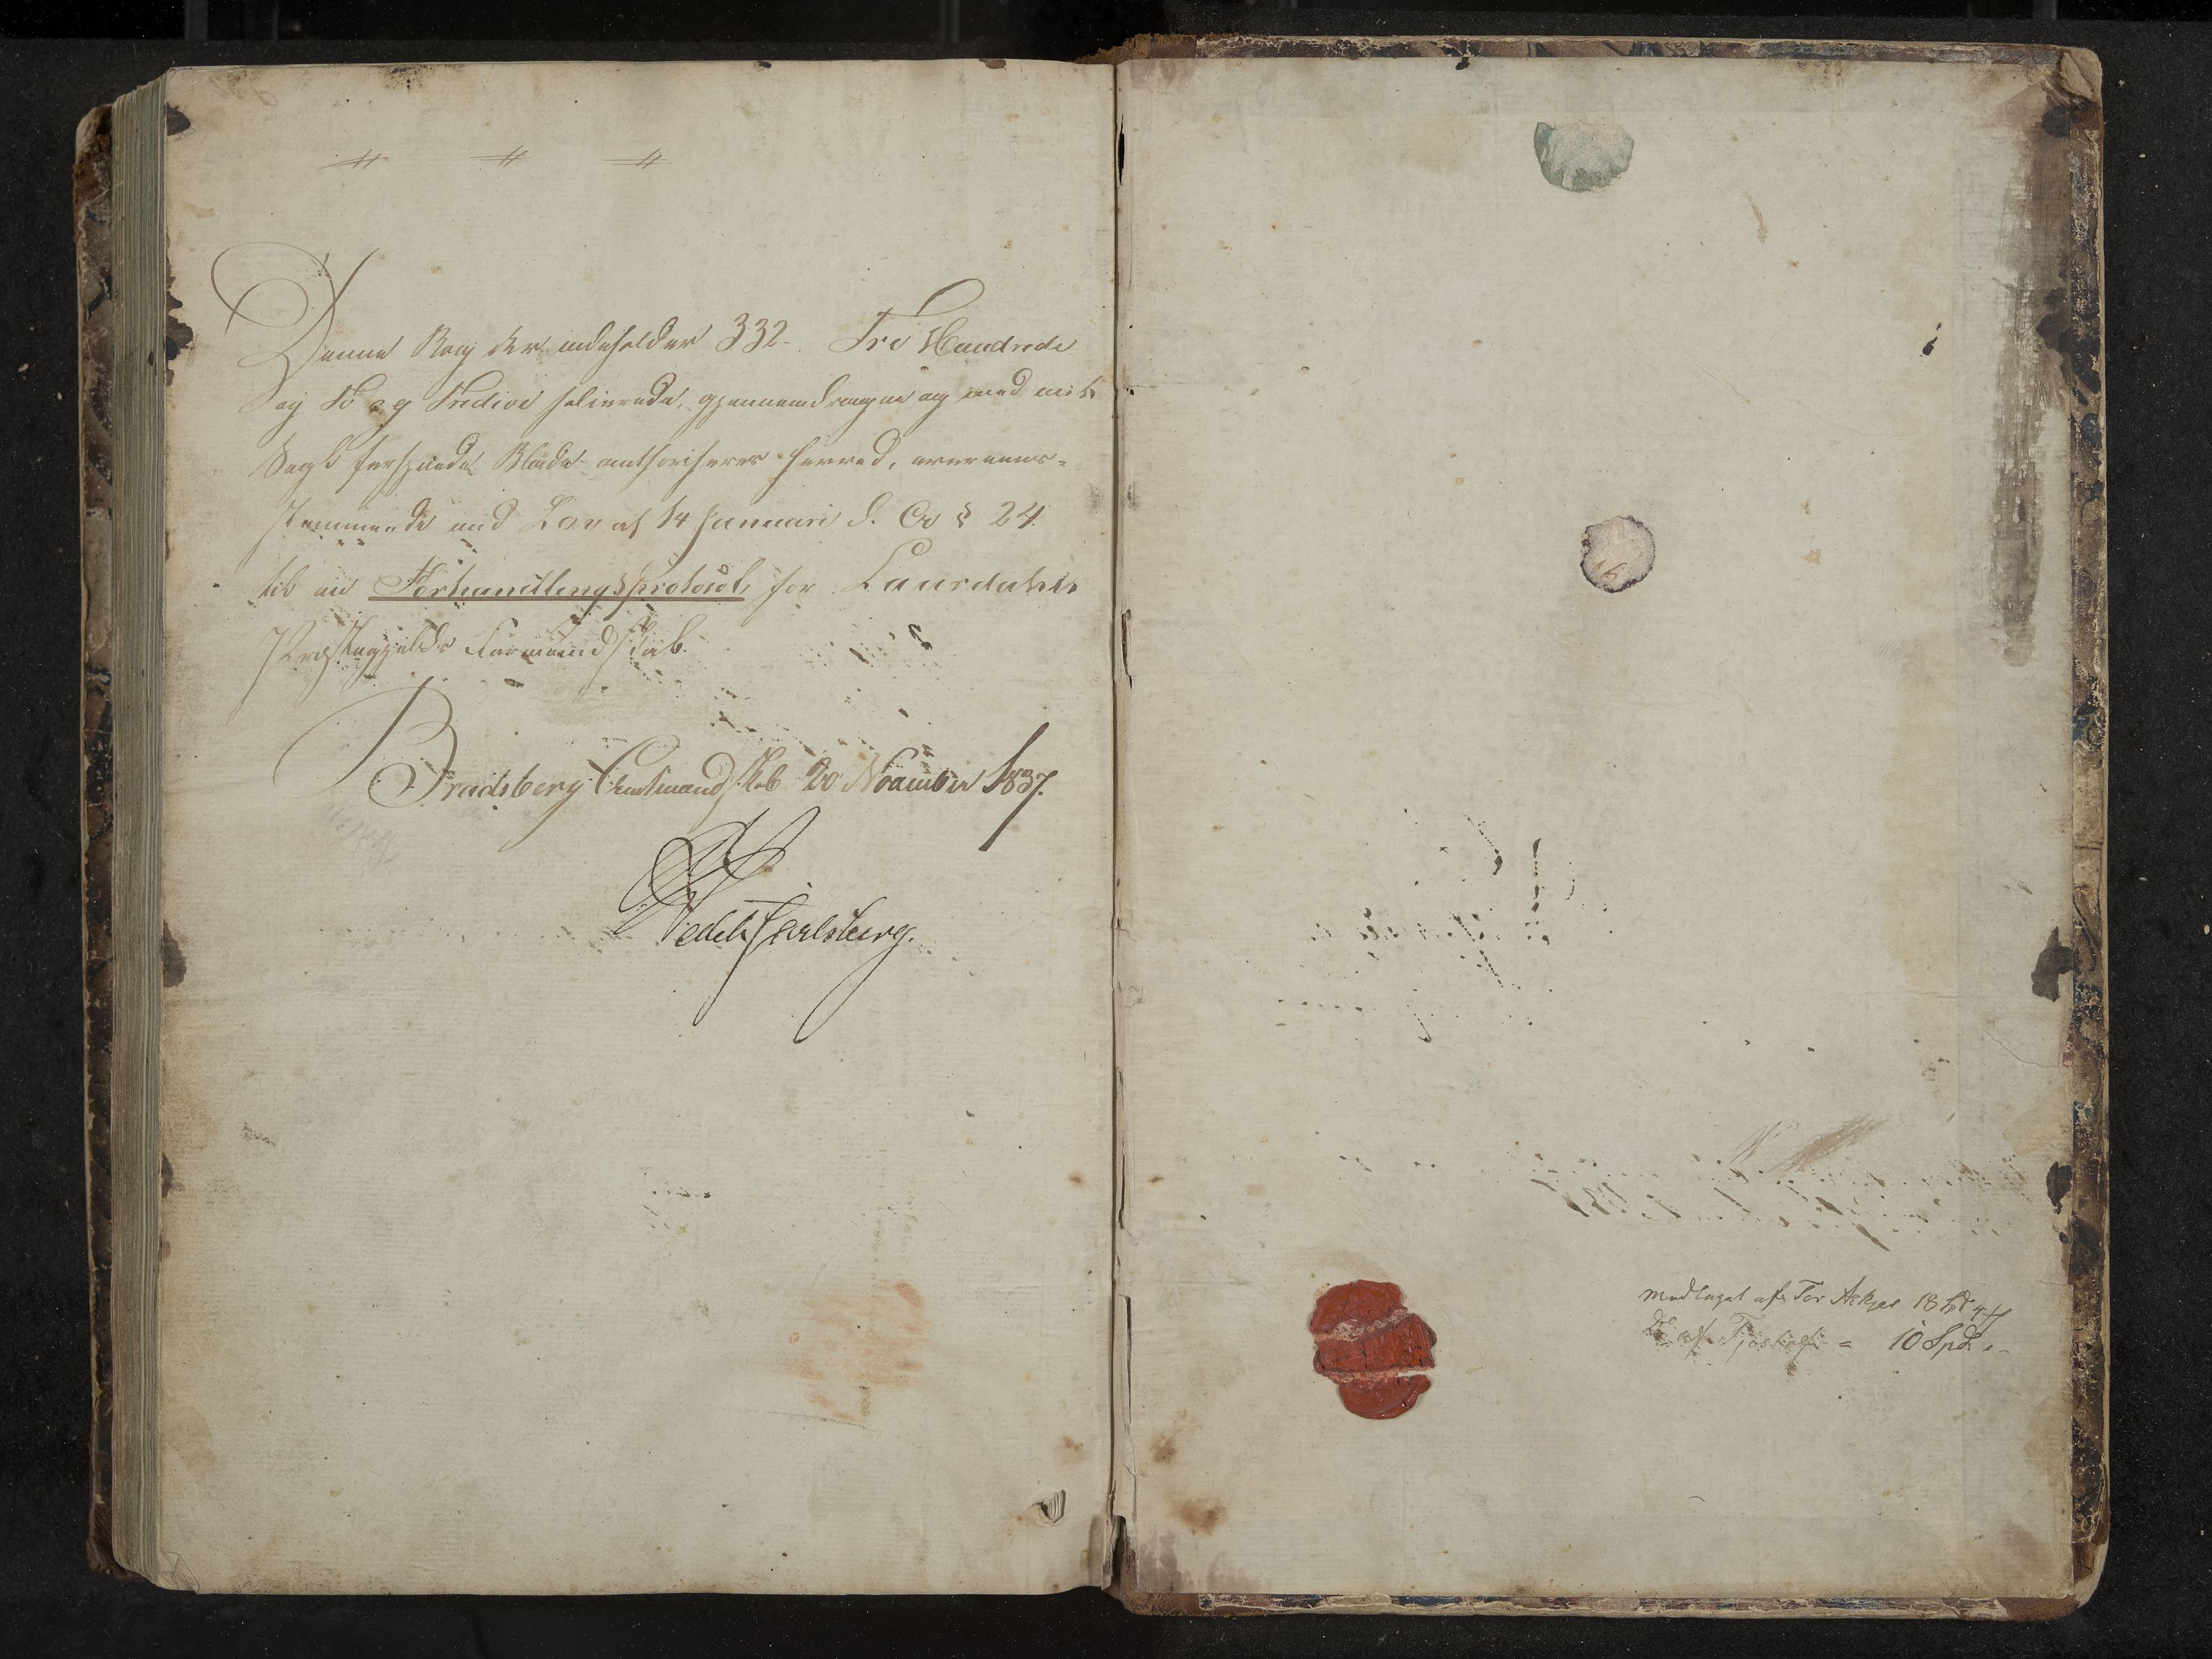 Denne Bog der indeholder 332 - Tre Hundrede
og To og Tredive folierede, gjennemdragne og med mit
Segl forsynede Blade authoriseres herved, overeens=
stemmende med Lov af 14 Januari d. A. § 24
til en Forhandlingsprotocol for Laurdahls
Præstegjelds Formandskab.
Bradsberg Amtmandskab 20 November 1837.
Wedel Jarlsberg.
Modtaget af Tor
Do af = 10 Spd. -